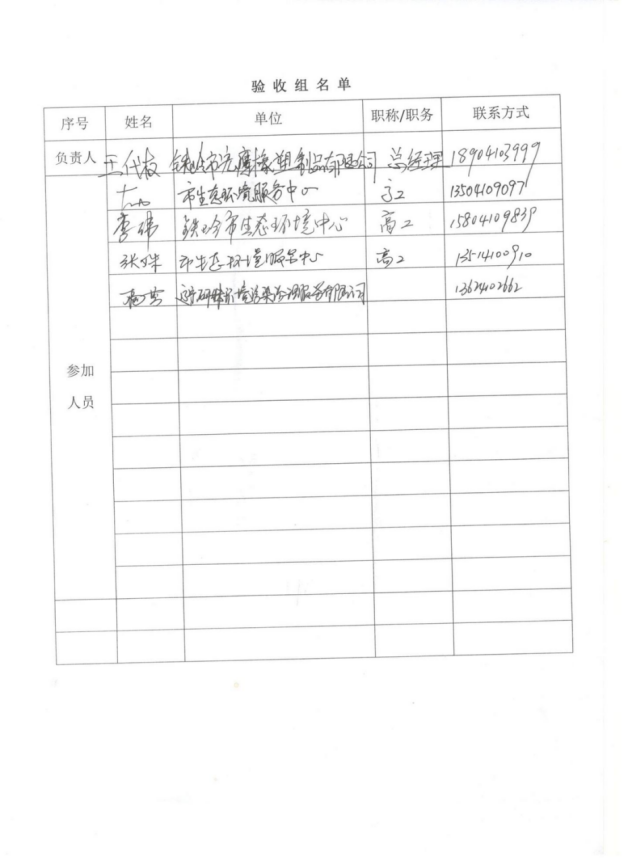 验收组名单
序号 姓名 单位 职称/职务 联系方式
负责人 王 铁岭市 橡塑制品有限公司 总经理 18904103999
市生态环境服务中心 高工 13504109097
李伟 铁岭市生态环境中心 高工 15804109839
张 市生态环境服务中心 高工 13514100910
环境污染 服务有限公司 13624102662
参加
人员